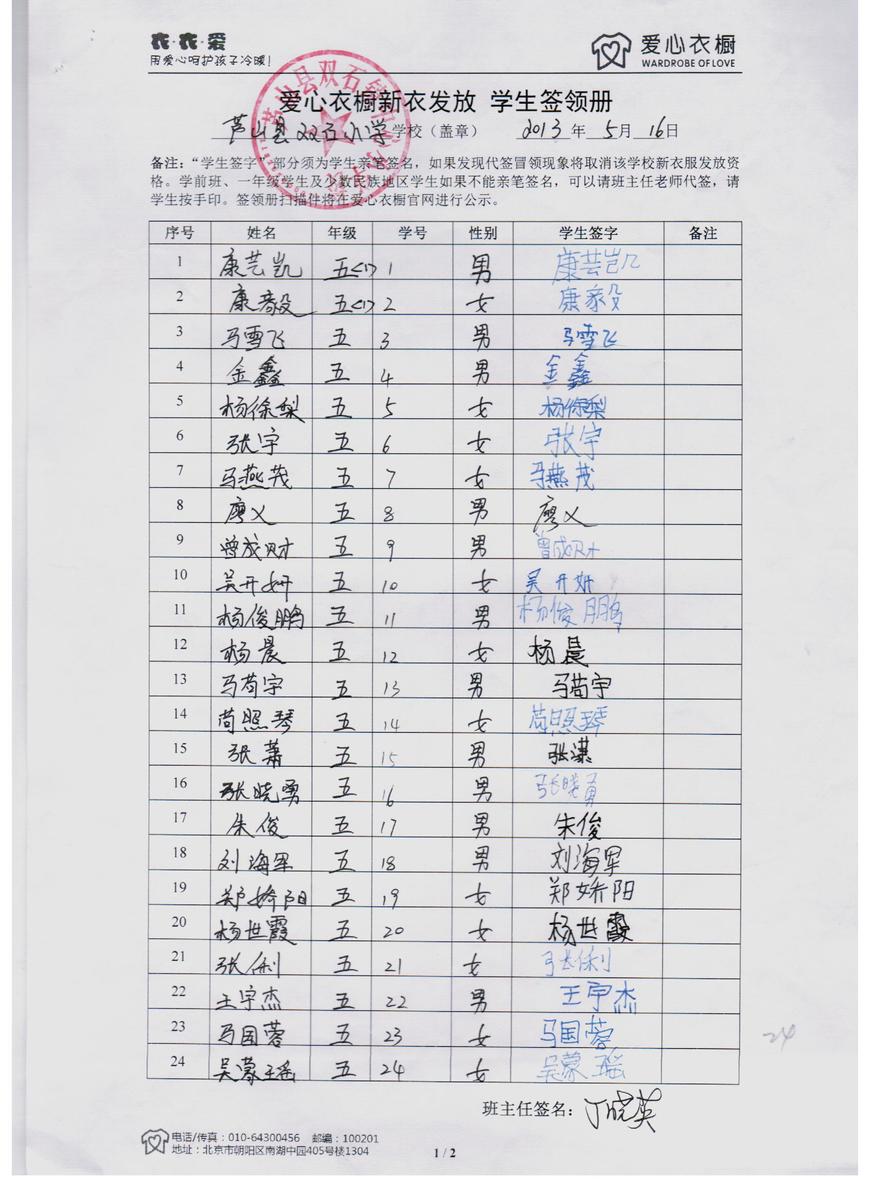 衣·衣·爱
用爱心呵护孩子冷暖!
爱心衣橱
WARDROBE OF LOVE
爱心衣橱新衣发放 学生签领册
芦山县双石小学学校（盖章） 2013 年 5月 16日
备注：“学生签字”部分须为学生亲笔签名，如果发现代签冒领现象将取消该学校新衣服发放资
格。学前班、一年级学生及少数民族地区学生如果不能亲笔签名，可以请班主任老师代签，请
学生按手印。签领册扫描件将在爱心衣橱官网进行公示。
序号 姓名 年级 学号 性别 学生签字 备注
1 康芸凯 五<1> 1 男 康芸凯
2 康毅 五<1> 2 女 康毅
3 马雪飞 五 3 男 马雪飞
4 金鑫 五 4 男 金鑫
5 杨徐梨 五 5 女 杨徐梨
6 张宇 五 6 女 张宇
7 马燕茂 五 7 女 马燕茂
8 廖义 五 8 男 廖义
9 曾成财 五 9 男 曾成财
10 吴开妍 五 10 女 吴开妍
11 杨俊鹏 五 11 男 杨俊鹏
12 杨晨 五 12 女 杨晨
13 马苟宇 五 13 男 马苟宇
14 苟照琴 五 14 女 苟照琴
15 张萧 五 15 男 张潇
16 张晓勇 五 16 男 张晓勇
17 朱俊 五 17 男 朱俊
18 刘海军 五 18 男 刘海军
19 郑娇阳 五 19 女 郑娇阳
20 杨世霞 五 20 女 杨世霞
21 张俐 五 21 女 张俐
22 王宇杰 五 22 男 王宇杰
23 马国蓉 五 23 女 马国蓉
24 吴蒙瑶 五 24 女 吴蒙瑶
24
班主任签名：丁晓英
电话/传真：010-64300456 邮编：100201
地址：北京市朝阳区南湖中园405号楼1304
1 / 2